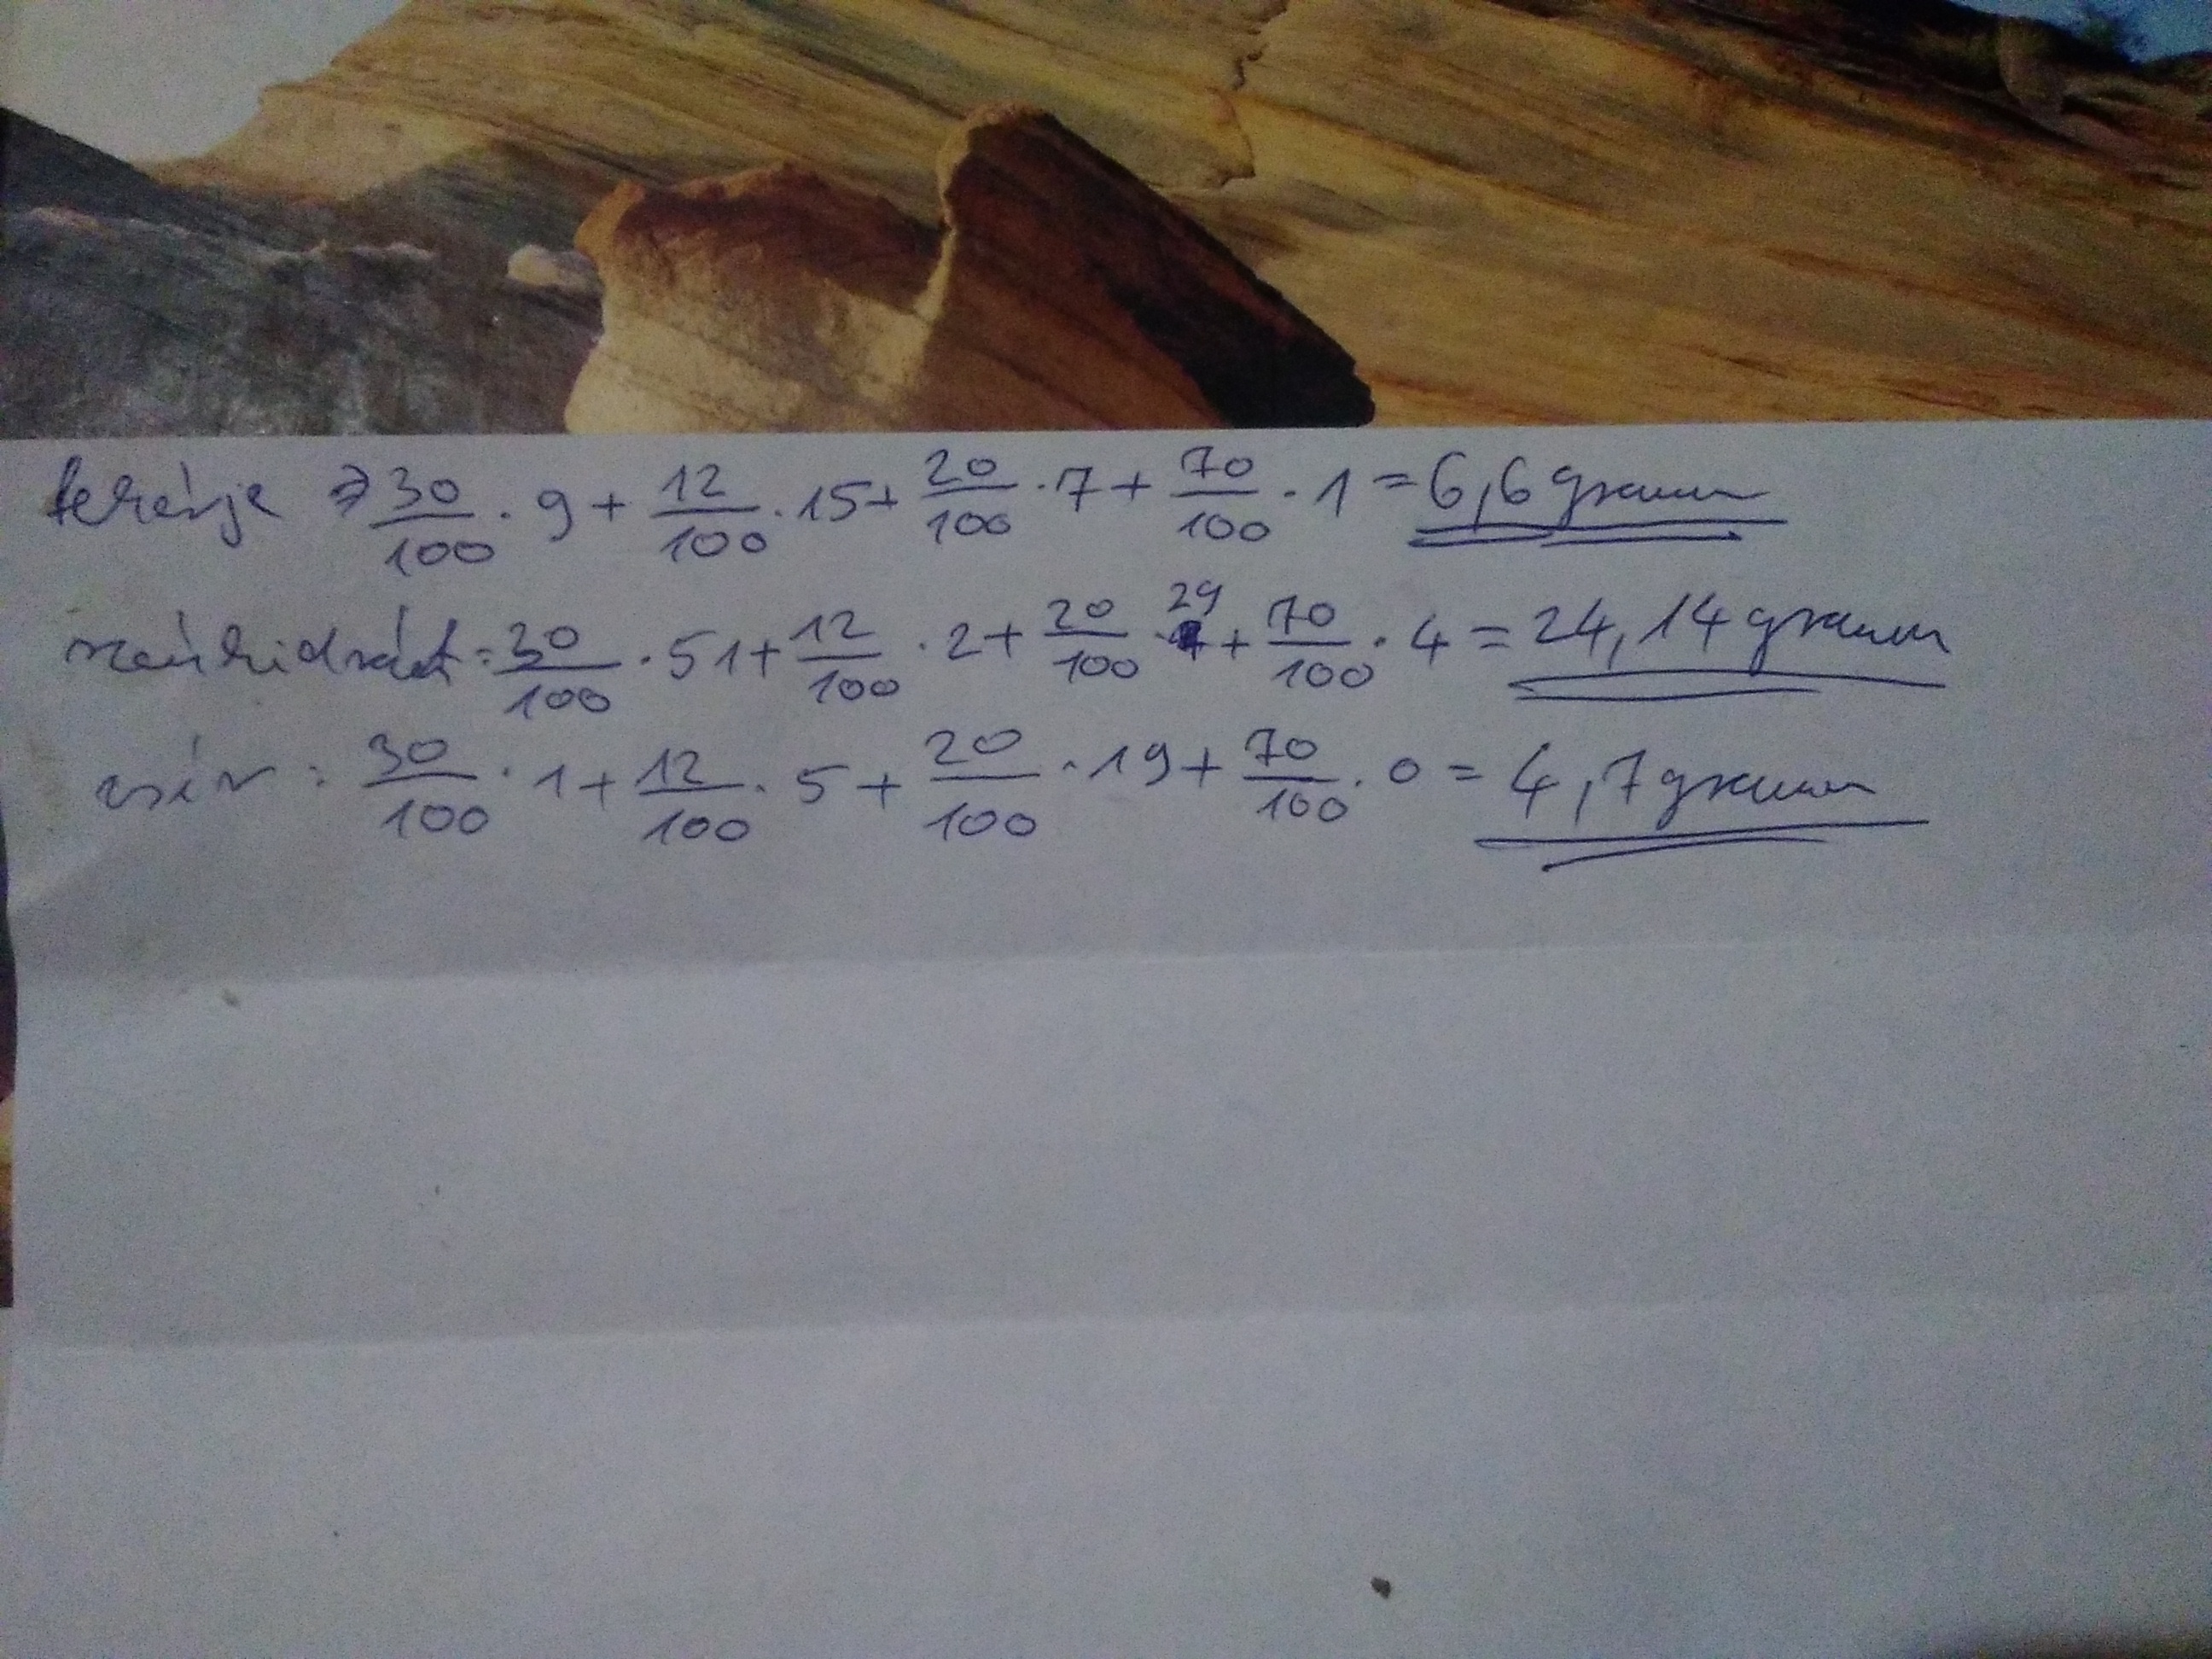 fehérje => 30/100 · 9 + 12/100 · 15 + 20/100 · 7 + 70/100 · 1 = 6,6 gramm
szénhidrát = 30/100 · 51 + 12/100 · 2 + 20/100 · 29 + 70/100 · 4 = 24,14 gramm
zsír : 30/100 · 1 + 12/100 · 5 + 20/100 · 19 + 70/100 · 0 = 4,7 gramm